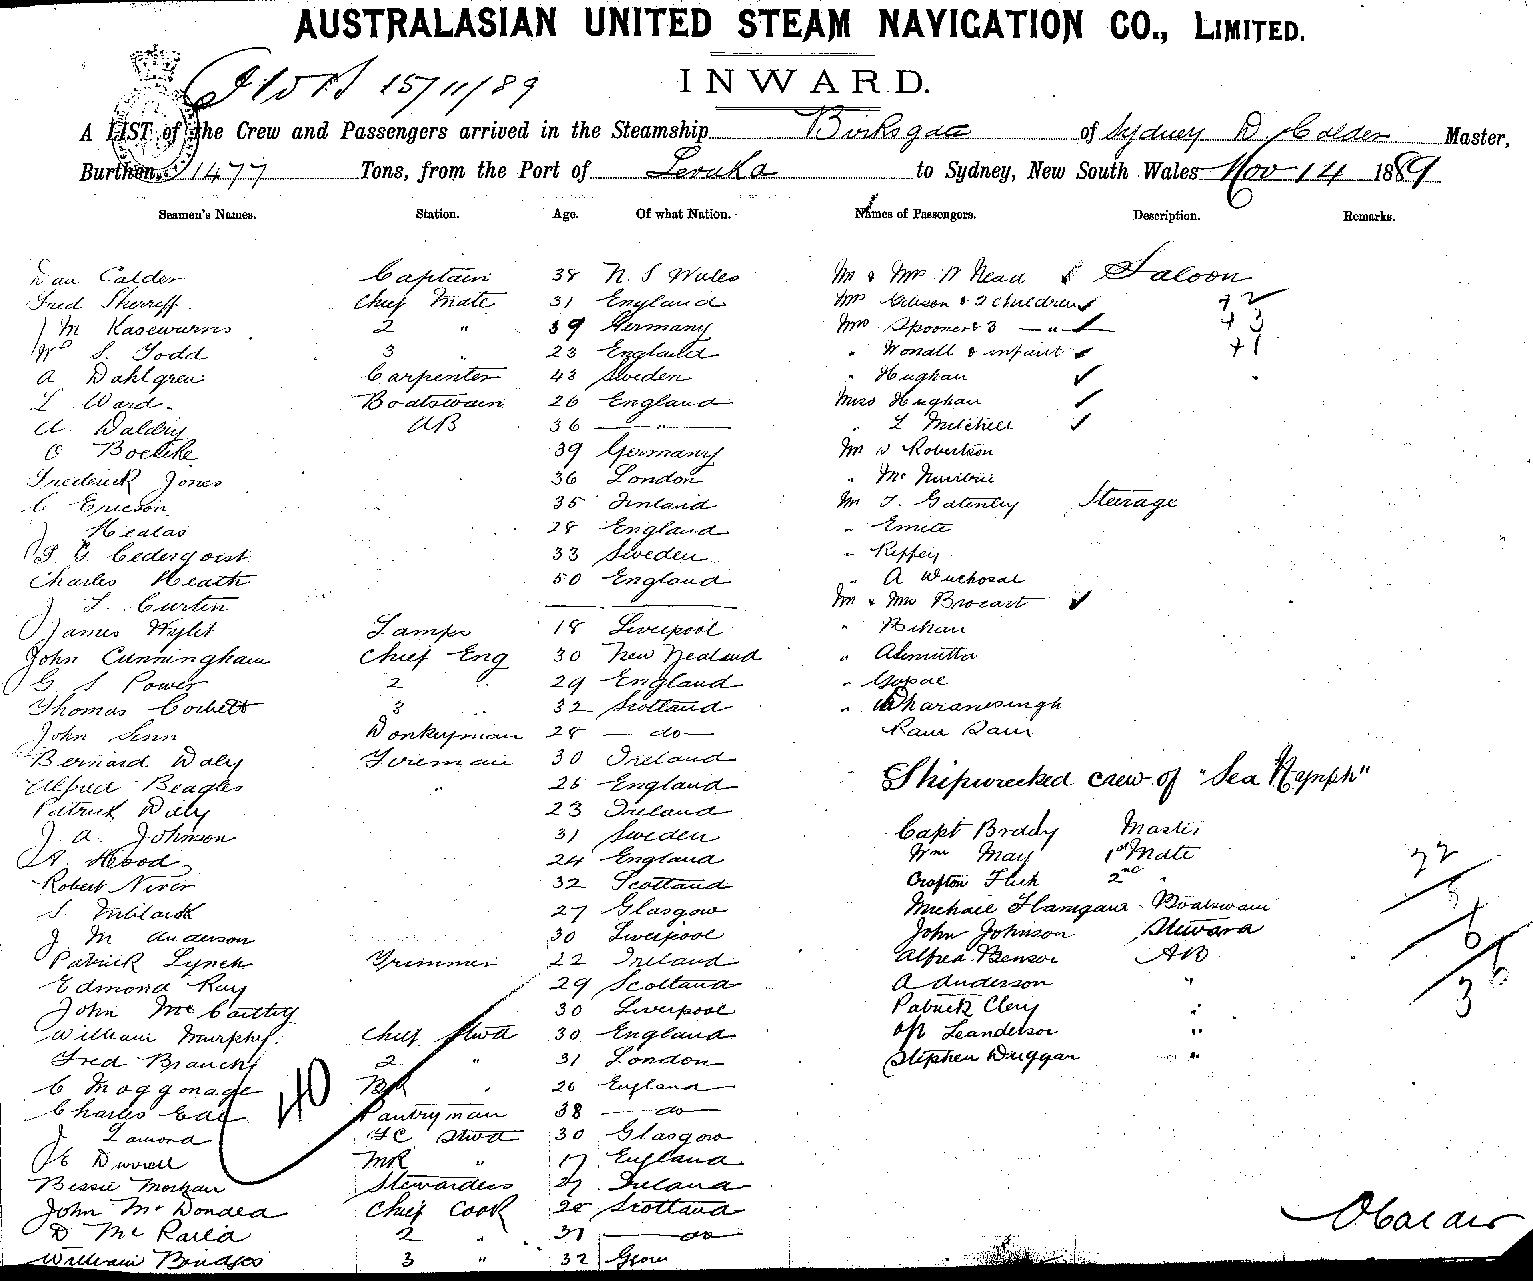 AUSTRALASIAN UNITED STEAM NAVIGATION CO., LIMITED.
15/11/89
INWARD.
A LIST of the Crew and Passengers arrived in the Steamship Birksgate of Sydney D Calder Master,
Burthen 1477 Tons, from the Port of Levuka to Sydney, New South Wales Nov 14 1889
Seamen's Names. Station. Age. Of what Nation. Names of Passengers. Description. Remarks.
Dan Calder Captain 38 N. S Wales Mr & Mrs Mead Saloon
Fred Sherriff Chief Mate 31 England Mrs Gibson & 2 children + 2
J M 2 " 39 Germany Mrs Spooner & 3 — " — + 3
Wm S. Todd 3 " 23 England " Wonall & infant + 1
A Dahlgren Carpenter 43 Sweden " Hughan
L Ward Boatswain 26 England Miss Hughan
A Daldry AB 36 — " — " L Mitchell
O Boethke 39 Germany Mr Robertson
Frederick Jones 36 London " Mc
C Ericson 35 Finland Mr T. Gatenby Steerage
J Healas 28 England "
Cederqvist 33 Sweden "
Charles Heath 50 England " A
J L. Curtin Mr & Mrs Brocart
James Wylet Lamps 18 Liverpool " Bihari
John Cunningham Chief Eng 30 New Zealand "
G S Power 2 " 29 England " Gopal
Thomas Corbett 3 " 32 Scotland " Dharamsingh
John Senn Donkeyman 28 — do — Ram Dani
Bernard Daly Fireman 30 Ireland
Alfred Beagles " 26 England Shipwrecked crew of "Sea Nymph"
Patrick Daly 23 Ireland
J. A. Johnson 31 Sweden Capt Braddy Master
A. Hood 24 England Wm May 1st Mate
Robert Niven 32 Scotland Crofton 2nd "
S. Millard 27 Glasgow Michael Flanigan Boatswain
J M Anderson 30 Liverpool John Johnson Steward
Patrick Lynch Trimmer 22 Ireland Alfred Benson AB
Edmond Ray 29 Scotland A Anderson "
John McCarthy 30 Liverpool Patrick Clery "
William Murphy Chief Stwd 30 England Leanderson "
Fred Branch 2 " 31 London Stephen Duggan "
C Moggonage " 26 England
Charles Pantryman 38 — do —
J Lamond FC Stwd 30 Glasgow
E Durrell MR " 17 England
Bessie Morhan Stewardess 27 Ireland
John McDonald Chief Cook 28 Scotland
D 2 " 31 — do
William Bridges 3 " 32
40
22
3
D Calder